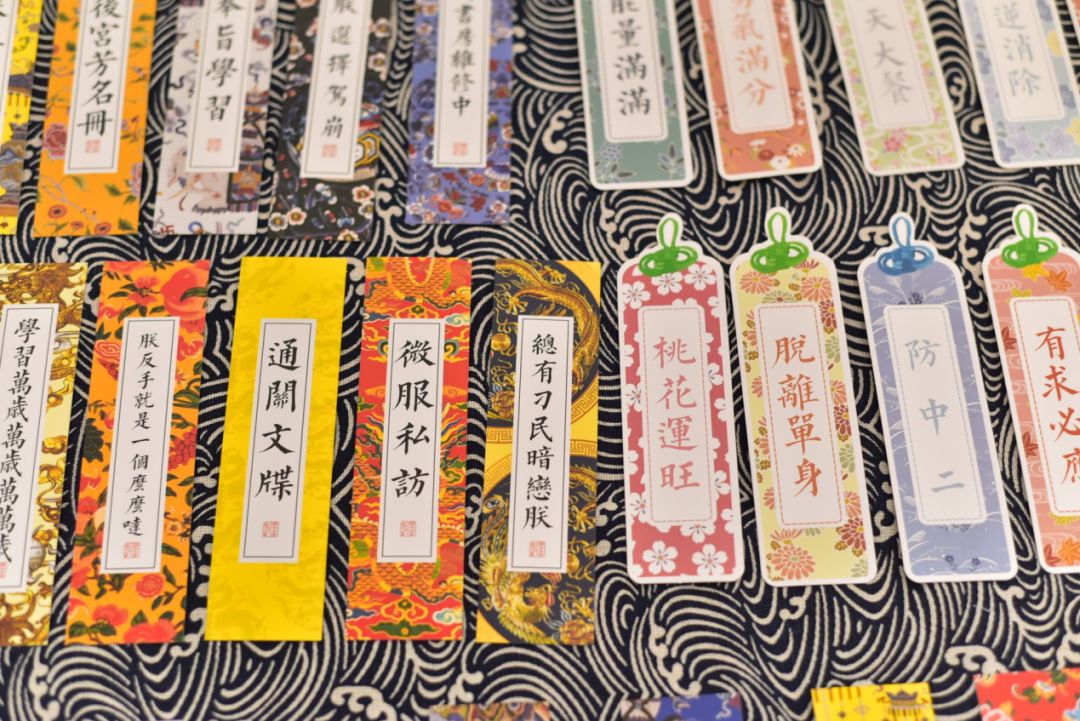 後宮芳名冊
奉旨學習
朕選擇駕崩
書房維修中
能量滿滿
氣滿分
天大餐
逆消除
學習萬歲萬歲萬萬歲
朕反手就是一個麼麼噠
通關文牒
微服私訪
總有刁民暗戀朕
桃花運旺
脫離單身
防中二
有求必應